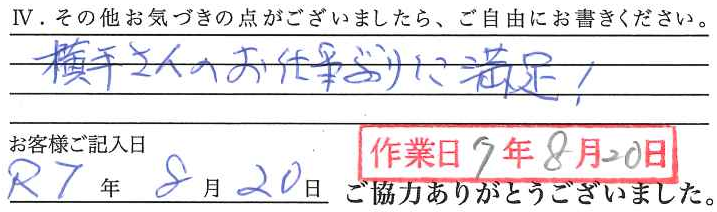 Ⅳ．その他お気づきの点がございましたら、ご自由にお書きください。
横手さんのお仕事ぶりに満足！
お客様ご記入日
R7年 8月20日
作業日 7年8月20日
ご協力ありがとうございました。